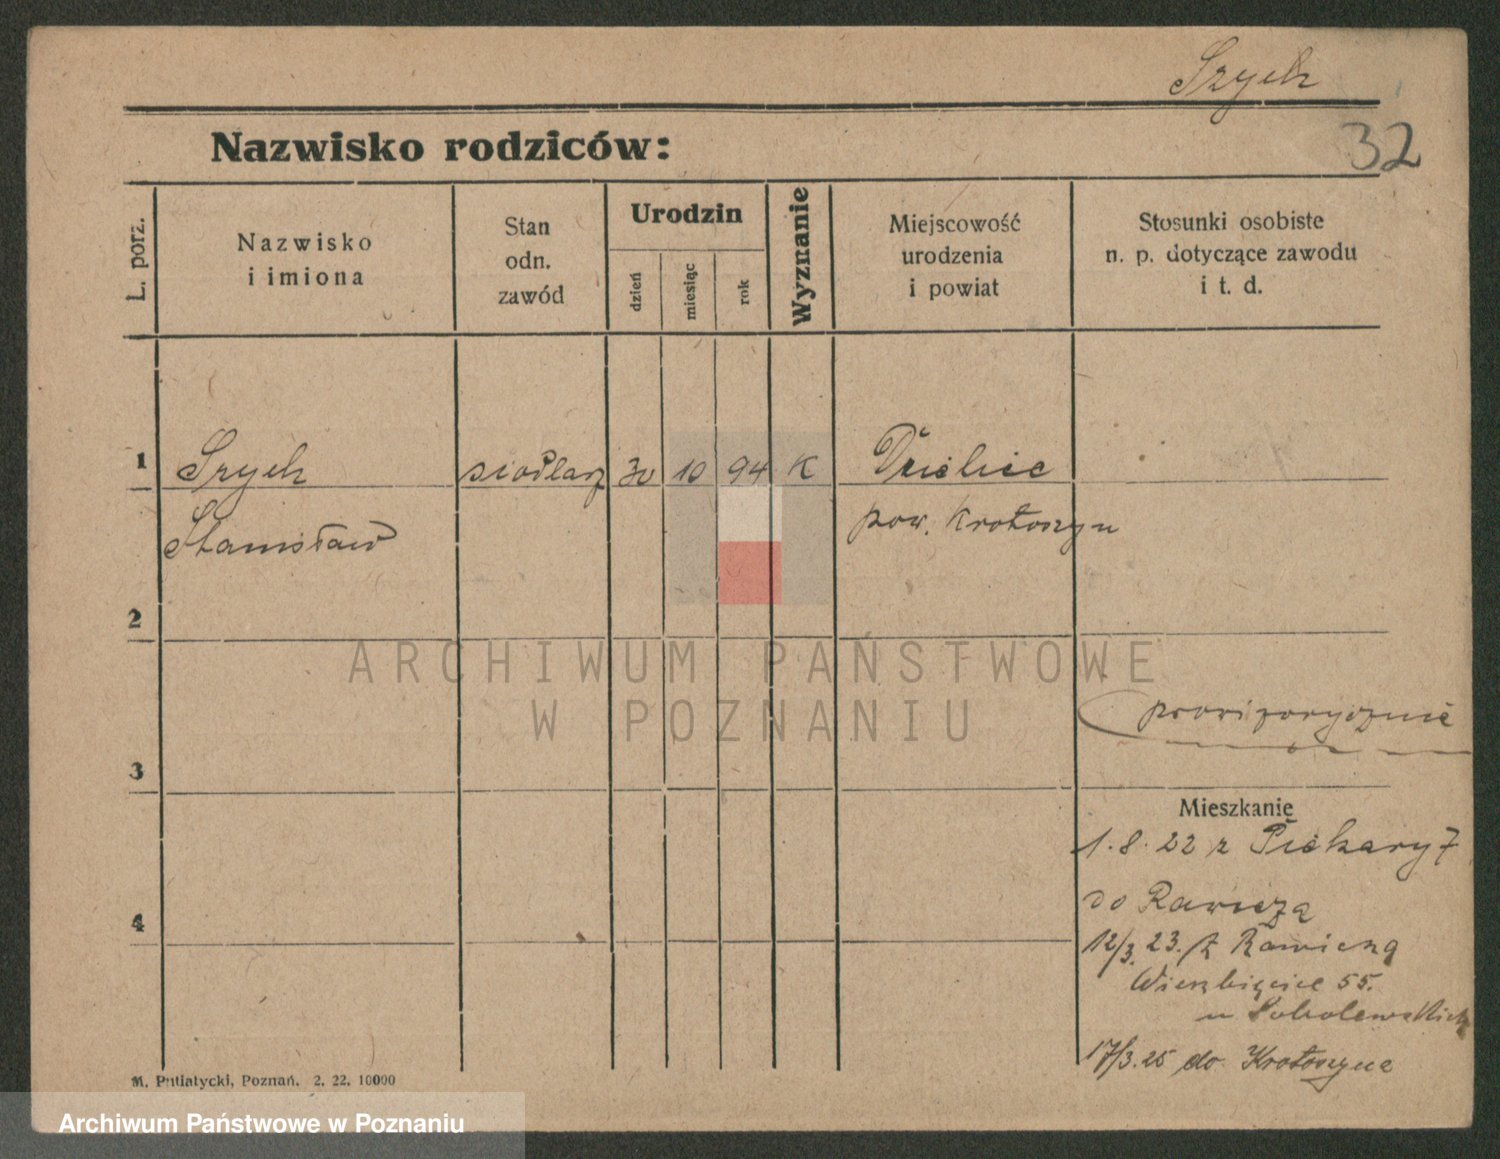 Szych
32
Nazwisko rodziców:
L. porz.
Nazwisko
i imiona
Stan
odn.
zawód
Urodzin
dzień
miesiąc
rok
Wyznanie
Miejscowość
urodzenia
i powiat
Stosunki osobiste
n. p. dotyczące zawodu
i t. d.
1 Szych siodlarz 30 10 94 K Dzielice
Stanisław pow. Krotoszyn
2
ARCHIWUM PAŃSTWOWE
W POZNANIU
prowizorycznie
3
Mieszkanie
1.8.22 z Piekary 7
do Rawicza
4
12/3.23. z Rawicza
Wierzbięcice 55.
u Sobolewskich
17/3.25 do Krotoszyna
M. Putiatycki, Poznań. 2. 22. 10000
Archiwum Państwowe w Poznaniu